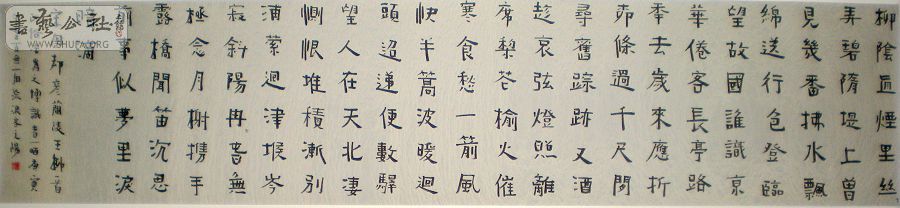 柳陰直煙里絲
弄碧隋堤上曾
見幾番拂水飄
綿送行色登臨
望故國誰識京
華倦客長亭路
年去歲來應折
柔條過千尺閒
尋舊踪跡又酒
趁哀弦燈照離
席梨花榆火催
寒食愁一箭風
快半篙波暖迴
頭迢遞便數驛
望人在天北淒
惻恨堆積漸別
浦縈迴津堠岑
寂斜陽冉春無
極念月榭攜手
露橋聞笛沉思
前事似夢里淚
暗滴
周邦彥蘭陵王柳
WWW.SHUFA.ORG